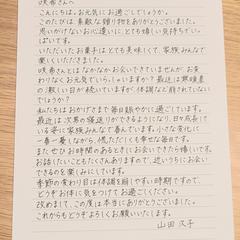 咲希さんへ
こんにちは。お元気にお過ごしでしょうか。
このたびは、素敵な贈り物をありがとうございました。
思いがけないお心遣いに、とても嬉しい気持ちでいっ
ぱいです。
いただいたお菓子はとても美味しくて、家族みんなで
楽しくいただきました。
咲希さんとはなかなかお会いできていませんが、お変
わりなくお元気でいらっしゃいますか？最近は寒暖差
の激しい日が続いていますが、体調など崩されていない
でしょうか？
私たちはおかげさまで毎日賑やかに過ごしています。
最近は次男の寝返りができるようになり、日々成長して
いる姿に家族みんなで喜んでいます。小さな変化に
一喜一憂しながら、慌ただしくも幸せな毎日です。
またぜひお時間のあるときにお会いできたら嬉しいです。
お話ししたいこともたくさんありますので、近いうちにお会い
できるのを楽しみにしています。
季節の変わり目は体調を崩しやすい時期ですので、
どうぞお体に気をつけてお過ごしください。
改めまして、この度は本当にありがとうございました。
これからもどうぞよろしくお願いいたします。
山田 久子